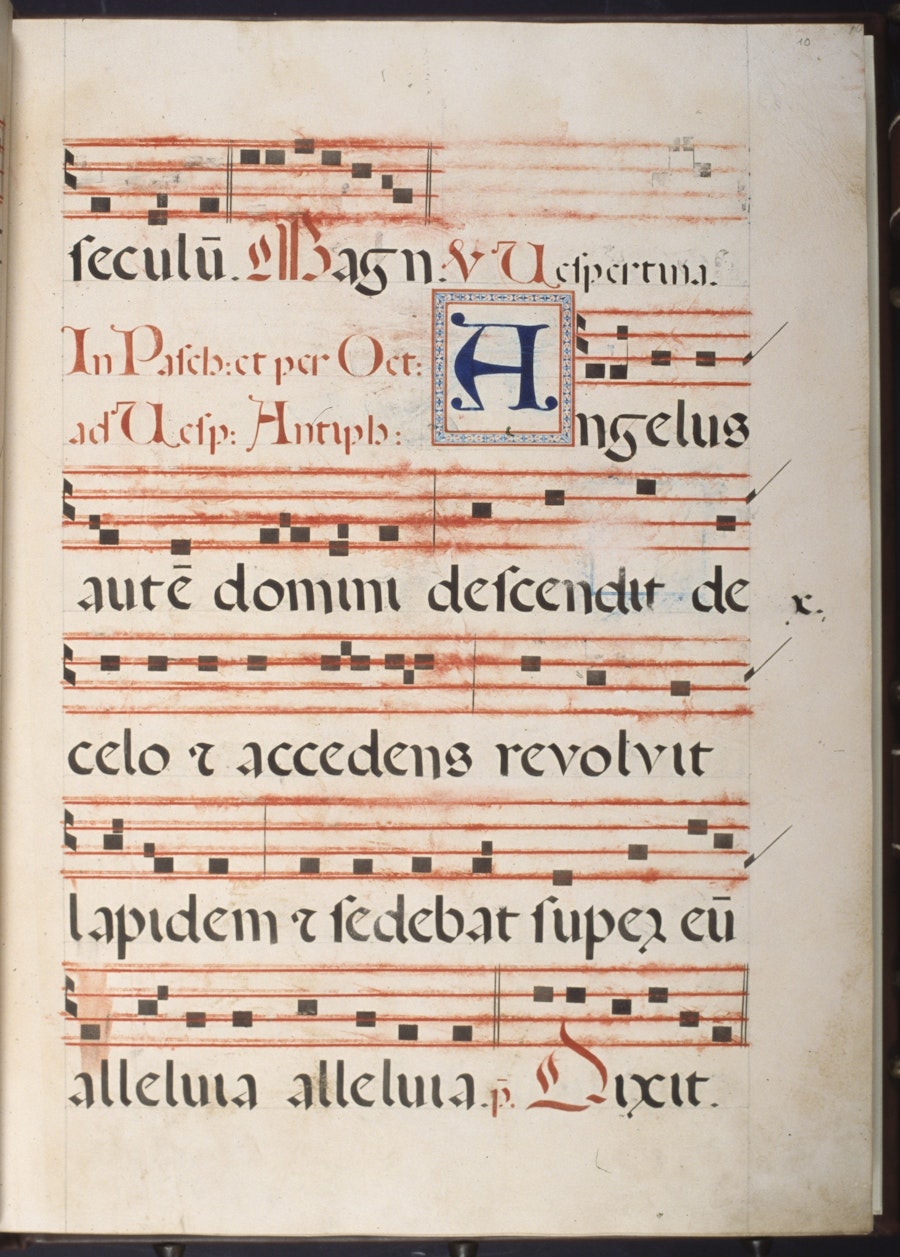 10
seculū. Magn. V Vespertina.
In Pasch: et per Oct:
ad Vesp: Antiph:
Angelus
autē domini descendit de
x.
celo ⁊ accedens revolvit
lapidem ⁊ sedebat super eū
alleluia alleluia. p̄. Dixit.